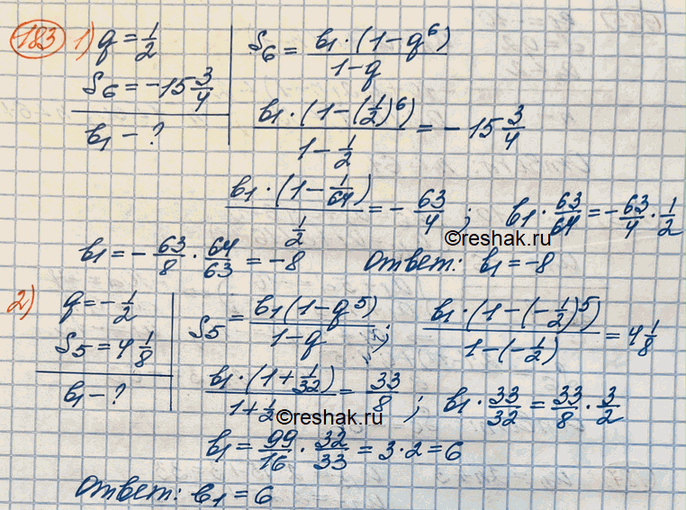 183 1) q = 1/2
S₆ = -15 3/4
b₁ - ?
S₆ = b₁·(1-q⁶)/(1-q)
b₁·(1-(1/2)⁶)/(1-1/2) = -15 3/4
b₁·(1-1/64)/(1/2) = -63/4; b₁·63/64 = -63/4·1/2
©reshak.ru
b₁ = -63/8·64/63 = -8 Ответ: b₁ = -8
2) q = -1/2
S₅ = 4 1/8
b₁ - ?
S₅ = b₁(1-q⁵)/(1-q) b₁·(1-(-1/2)⁵)/(1-(-1/2)) = 4 1/8
b₁·(1+1/32)/(1+1/2) = 33/8; b₁·33/32 = 33/8·3/2
©reshak.ru
b₁ = 99/16·32/33 = 3·2 = 6
Ответ: b₁ = 6